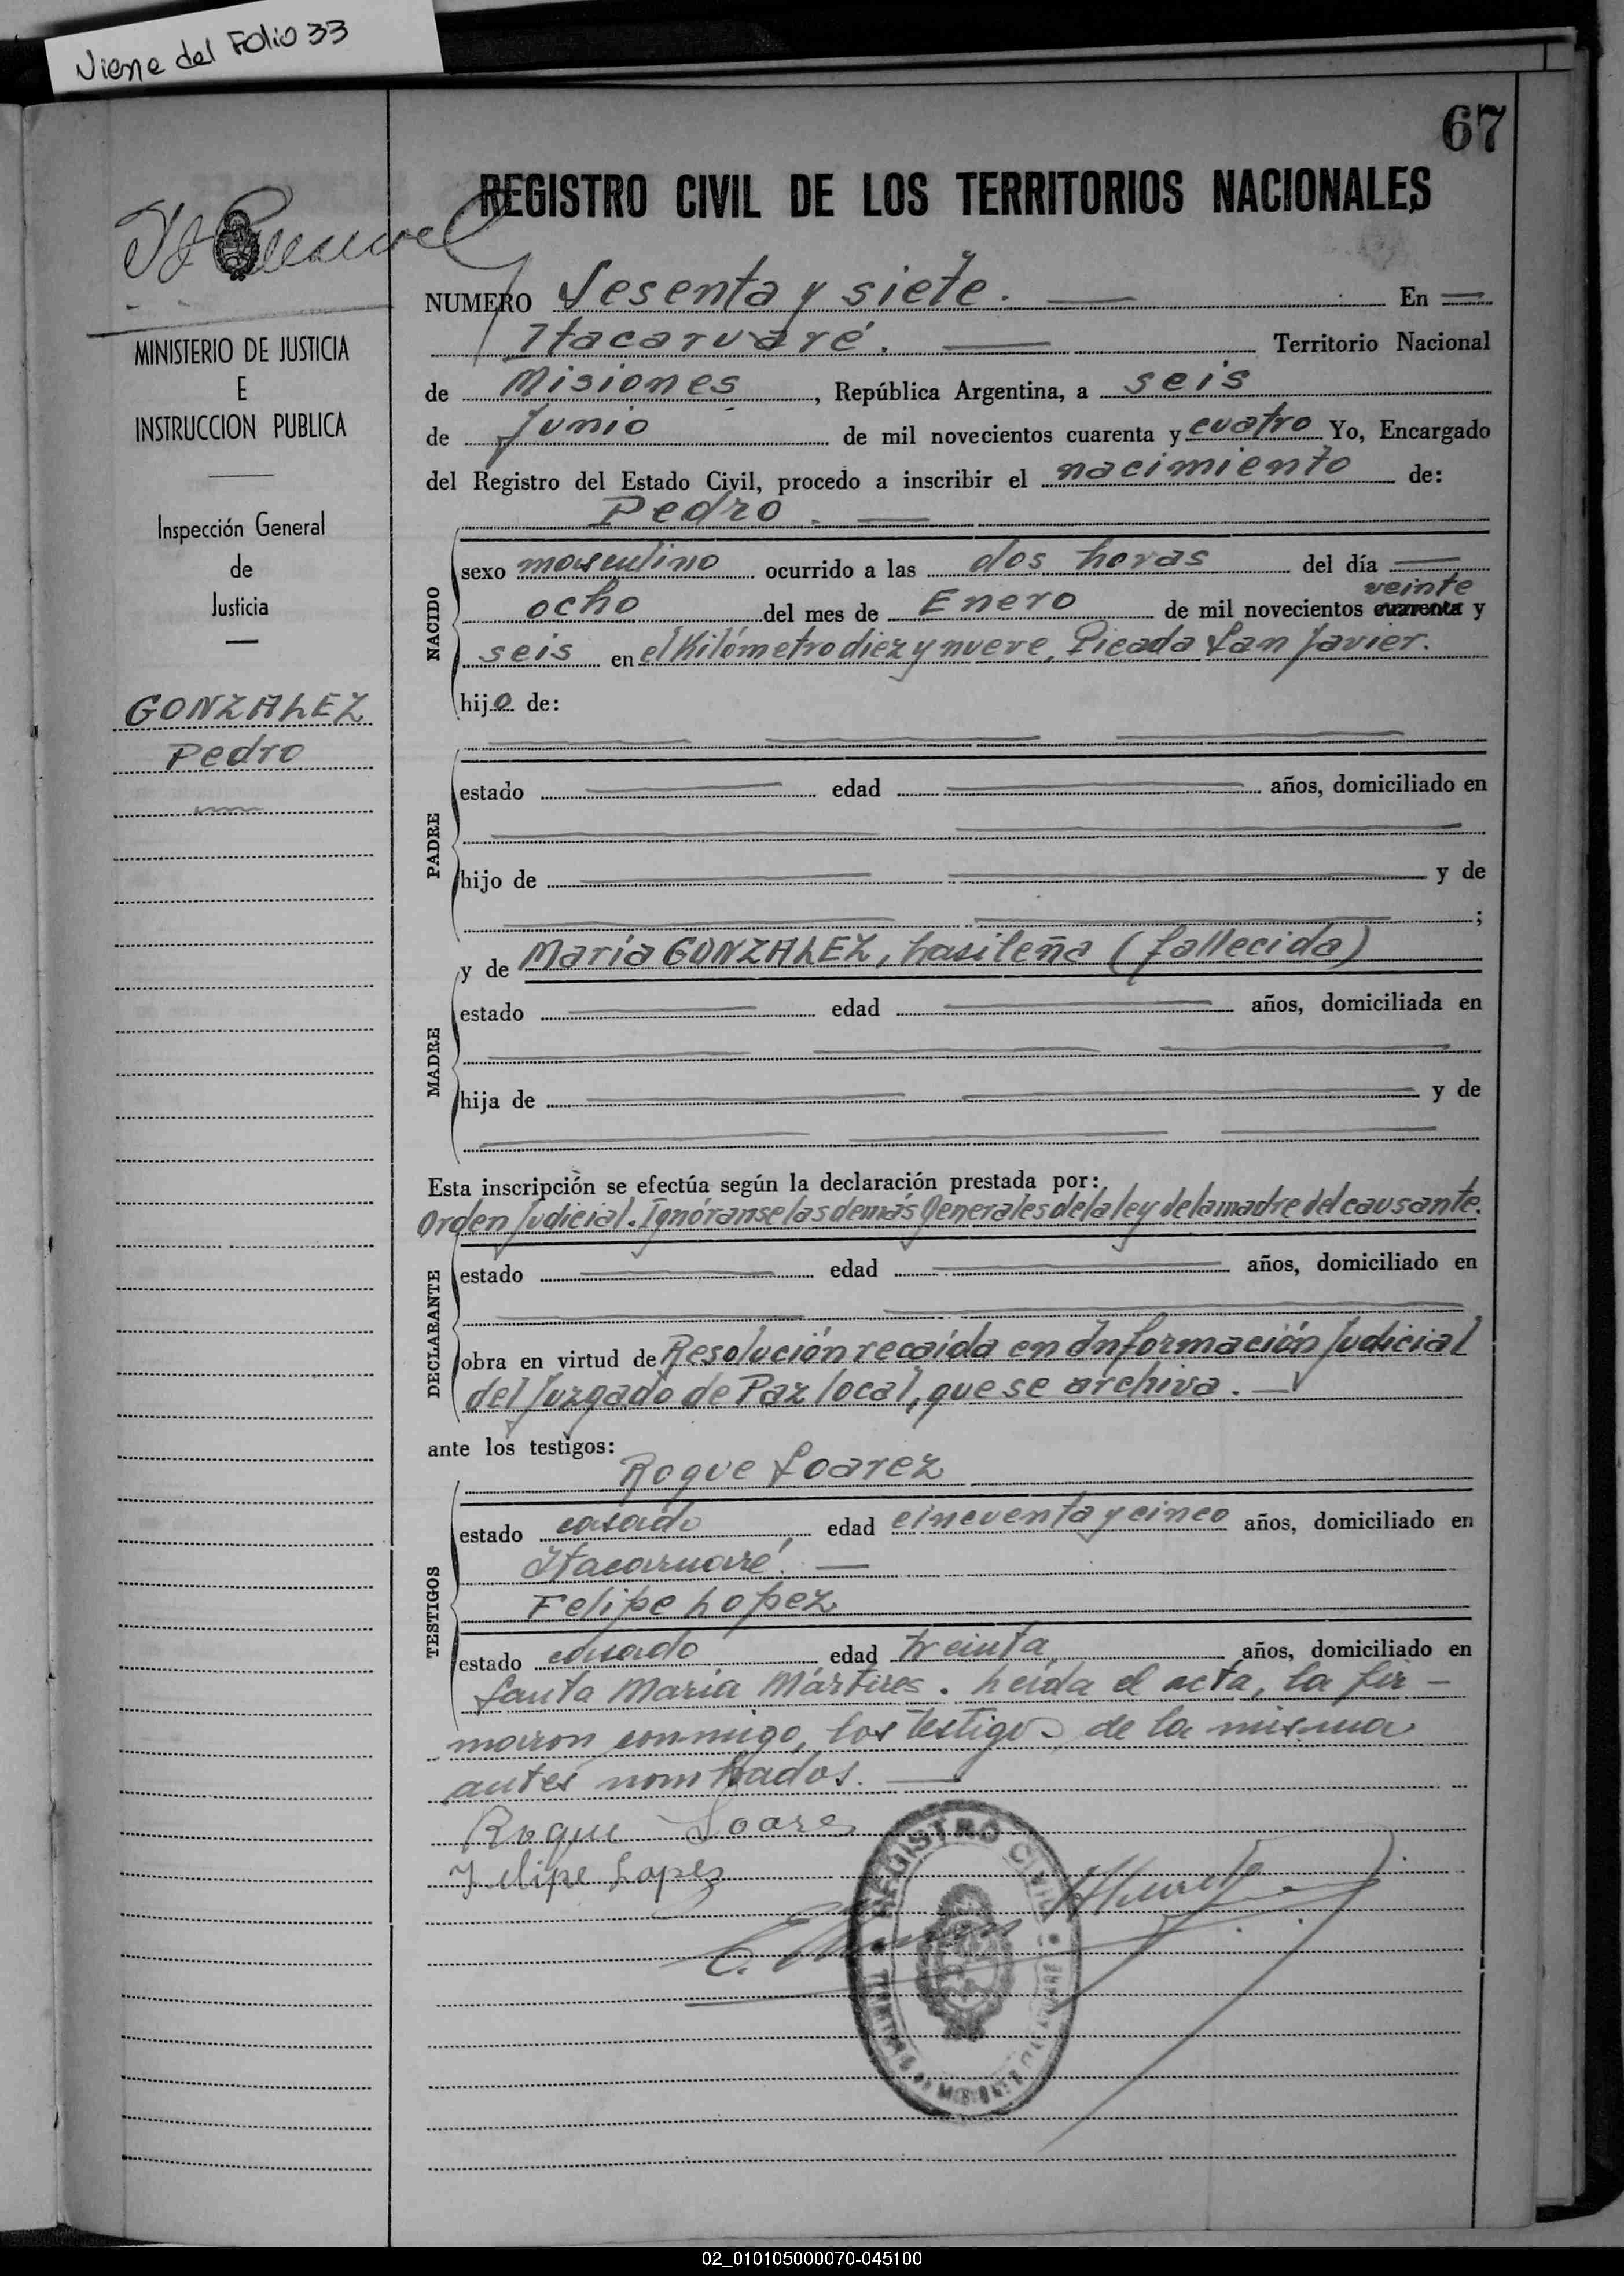 Viene del Folio 33
67
REGISTRO CIVIL DE LOS TERRITORIOS NACIONALES
MINISTERIO DE JUSTICIA
E
INSTRUCCION PUBLICA
Inspección General
de
Justicia
GONZALEZ
Pedro
NUMERO Sesenta y siete. En
Itacaruaré. Territorio Nacional
de Misiones, República Argentina, a seis
de Junio de mil novecientos cuarenta y cuatro Yo, Encargado
del Registro del Estado Civil, procedo a inscribir el nacimiento de:
Pedro.
NACIDO
sexo masculino ocurrido a las dos horas del día
veinte
ocho del mes de Enero de mil novecientos cuarenta y
seis en el Kilómetro diez y nueve, Picada San Javier.
hijo de:
PADRE
estado edad años, domiciliado en
hijo de y de
;
y de María GONZALEZ, basileña (fallecida)
MADRE
estado edad años, domiciliada en
hija de y de
Esta inscripción se efectúa según la declaración prestada por:
Orden Judicial. Ignóranse las demás Generales de la ley de la madre del causante.
DECLARANTE
estado edad años, domiciliado en
obra en virtud de Resolución recaída en Información Judicial
del Juzgado de Paz local, que se archiva.
ante los testigos:
Roque Soarez
TESTIGOS
estado casado, edad cincuenta y cinco años, domiciliado en
Itacaruaré.
Felipe Lopez
estado casado edad treinta años, domiciliado en
Santa María Mártires. Leída el acta, la fir-
maron conmigo, los testigos de la misma
antes nombrados.
Roque Soares
Felipe Lopez
REGISTRO CIVIL
02_010105000070-045100